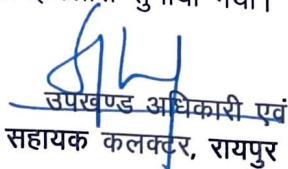 सुनाया गया।
उपखण्ड अधिकारी एवं
सहायक कलक्टर, रायपुर